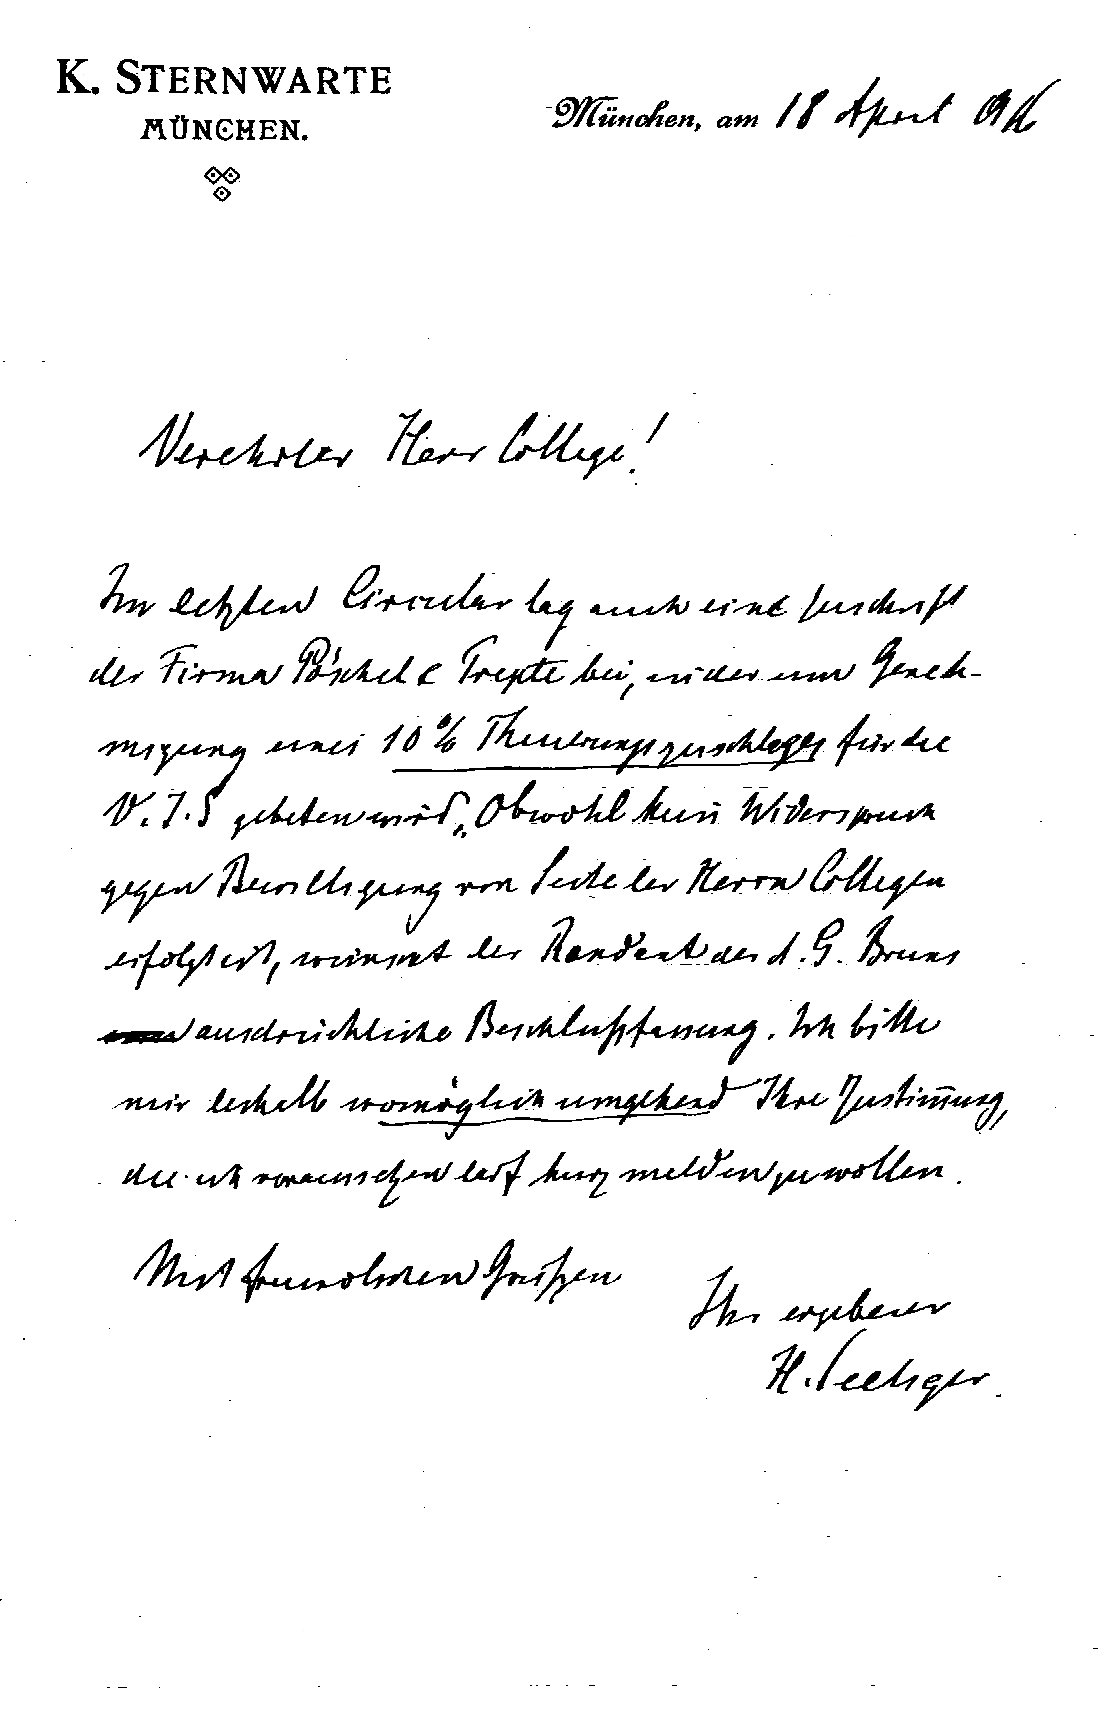 K. STERNWARTE
MÜNCHEN.
München, am 18 April 916
Verehrter Herr College!
Im letzten Circular lag auch eine Zuschrift
der Firma Pöschel & Trepte bei, in der um Geneh-
migung eines 10% Theuerungszuschlages für die
V.J.S gebeten wird. Obwohl kein Widerspruch
gegen Bewilligung von Seite der Herrn Collegen
erfolgt ist, wünscht der Rendant der A.G. Bruns
ausdrückliche Beschlußfassung. Ich bitte
mir deshalb womöglich umgehend Ihre Zustim̄ung,
die ich voraussetzen darf kurz melden zu wollen.
Mit freundlichen Grüßen
Ihr ergebener
H. Seeliger